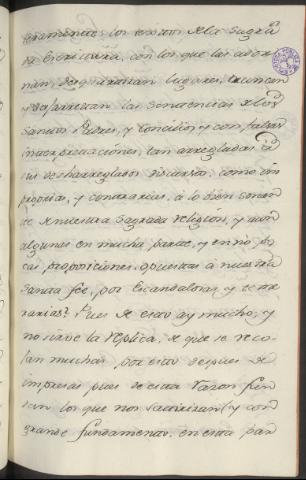 los textos de la Sagrada
Escritura, con los que las ador-
nan, desquartizan lugares, truncan
y las sentencias de los
Santos Padres, y Concilios, y con falsas
interpretaciones, tan arregladas a
sus desharreglados discursos, como im
propias, y contrarias, a lo bien sonan
te de nuestra Sagrada religion, y aun
algunas en mucha parte, y en no po
cas proposiciones opuestas à nuestra
Santa fee, por escandalosas, y teme
rarias? Pues de esto ay mucho, y
no sirve la replica, de que se reco-
jan muchas, por esto despues de
impresas pues de esta razon fun
dan los que nos satirizan (y con
grande fundamento. en esta par